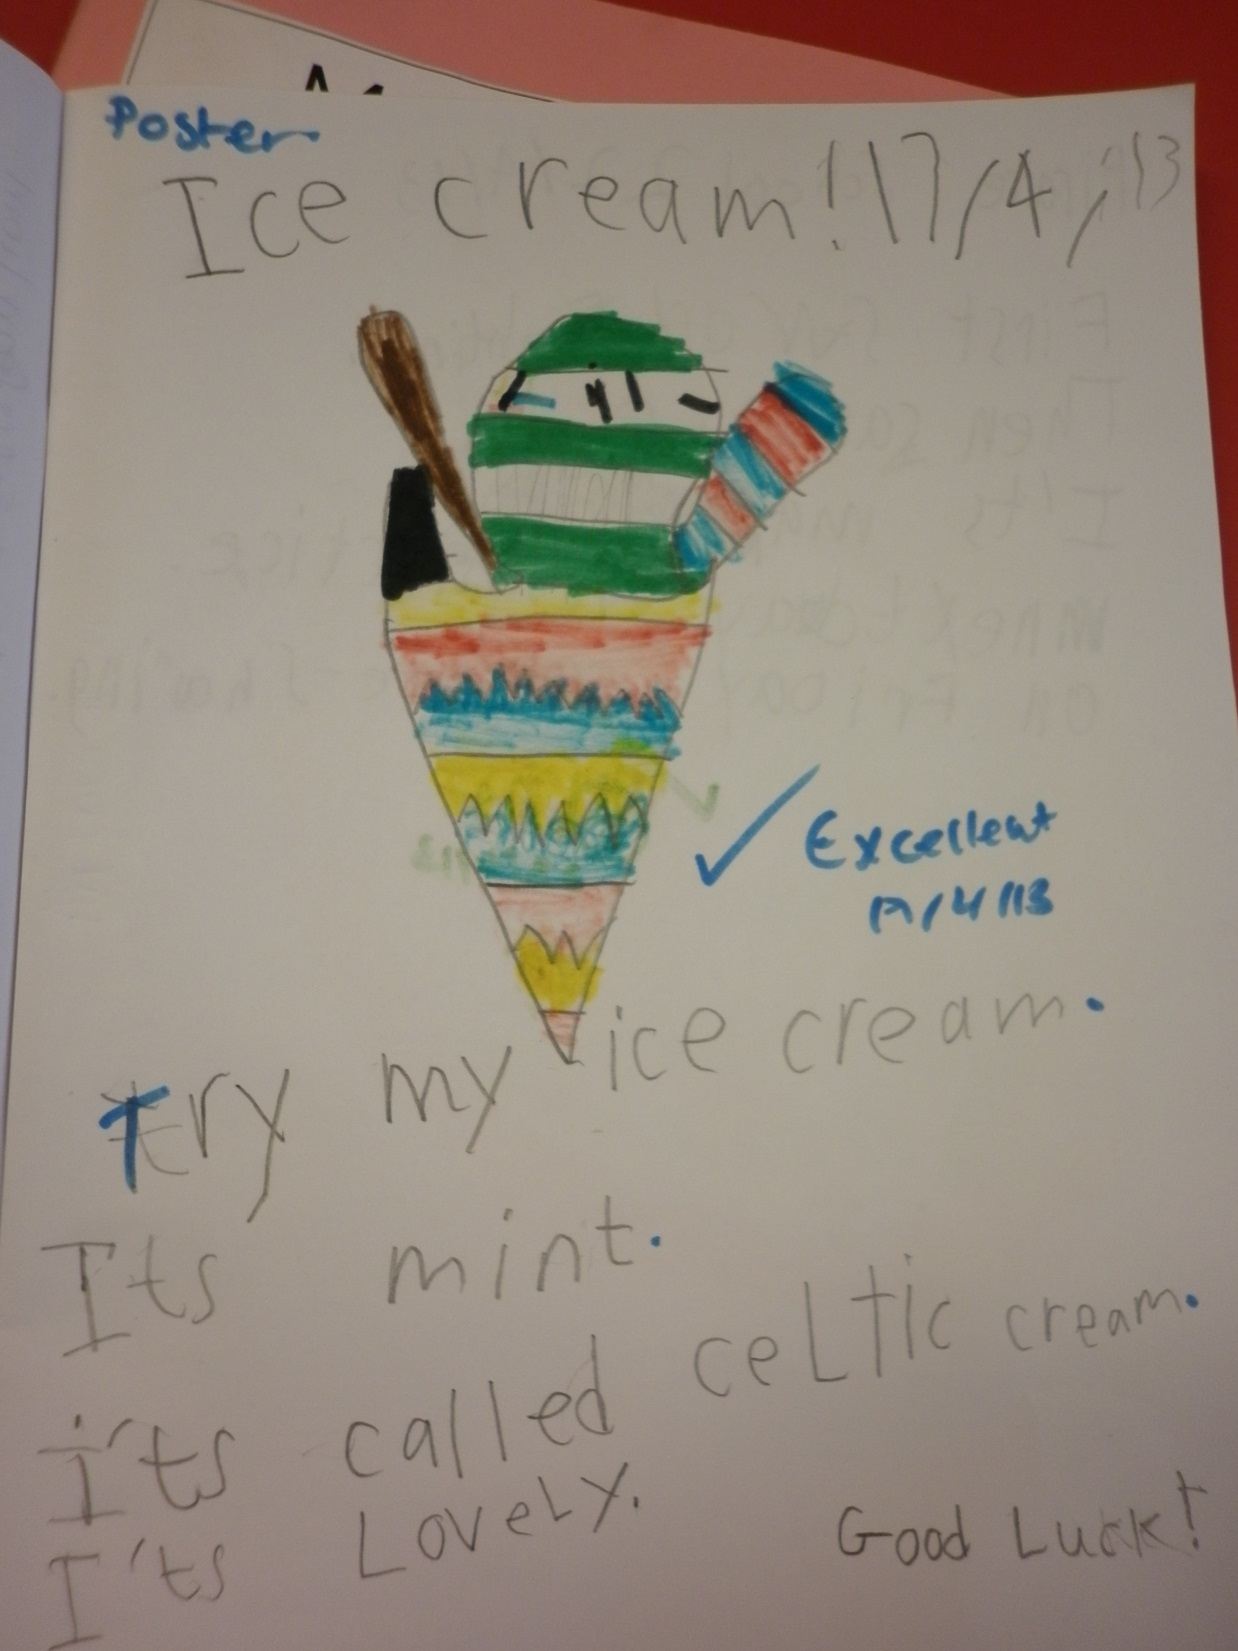 Poster
Ice cream! 17/4/13
Excellent
17/4/13
Try my ice cream.
Its mint.
i'ts called celtic cream.
I'ts Lovely.
Good Luck!